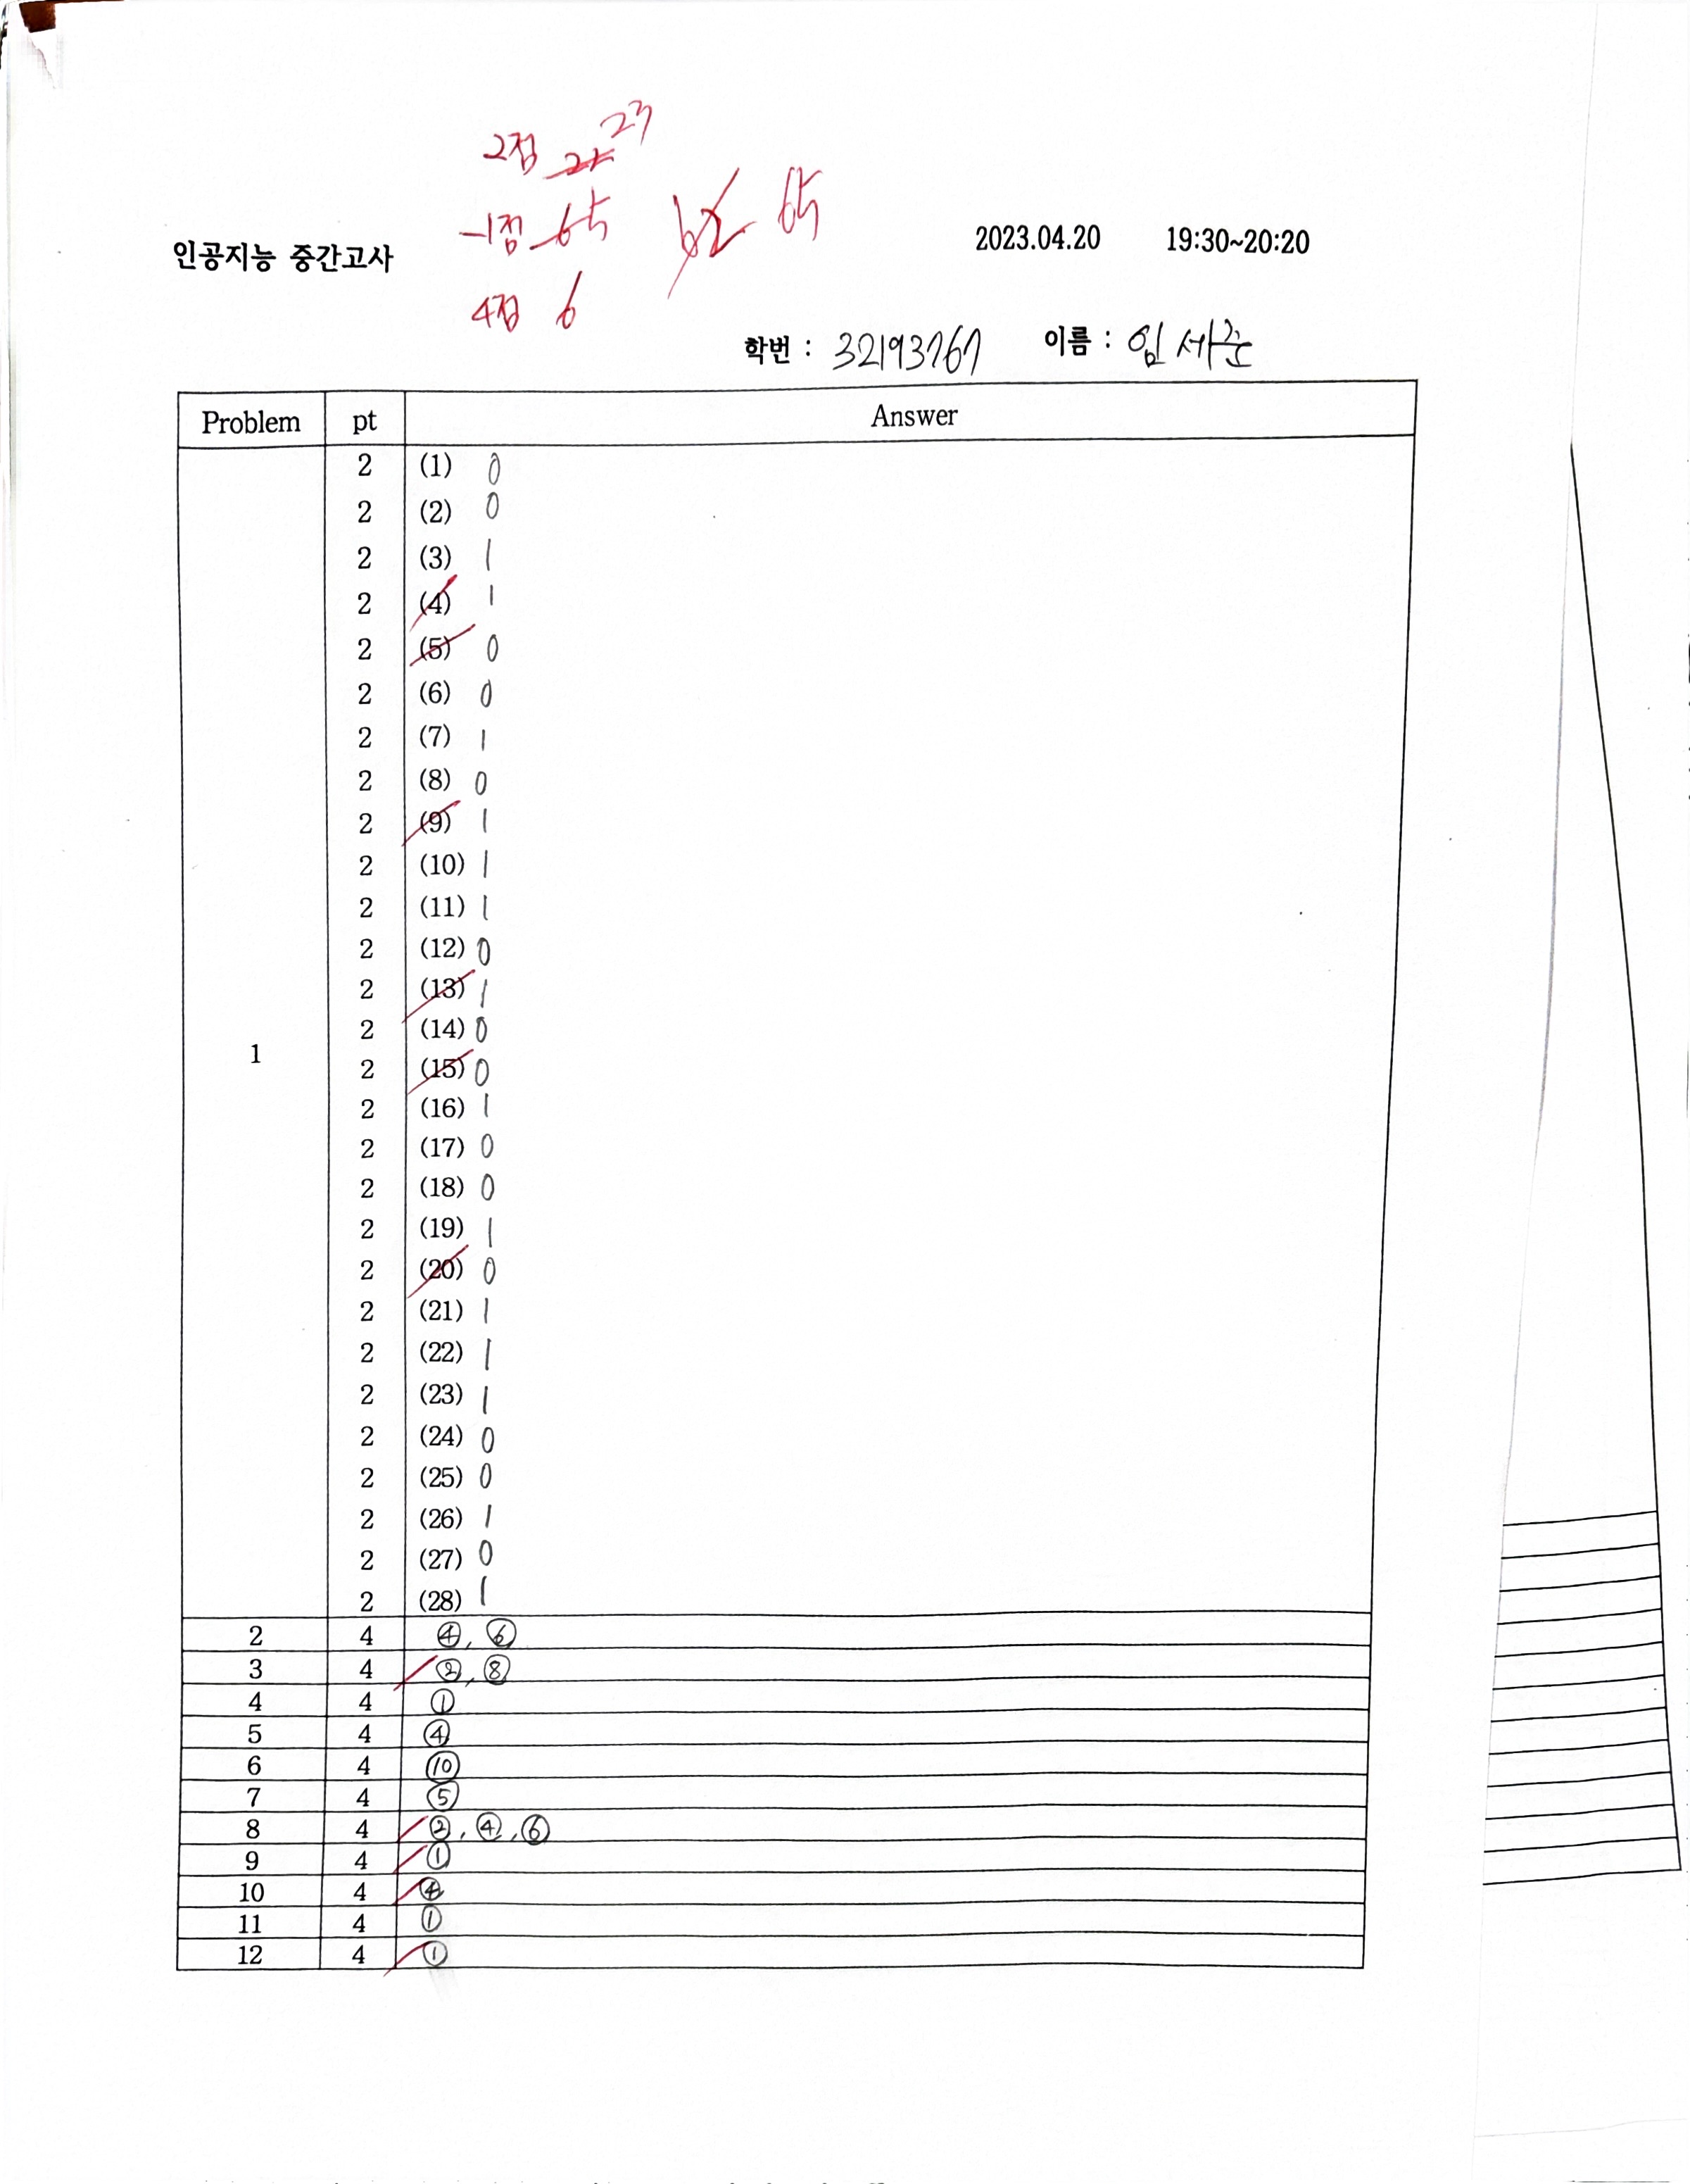 2점 23
-1점 5
4점 6
65
인공지능 중간고사
2023.04.20 19:30~20:20
학번 : 32193767 이름 : 임세준
Problem pt Answer
1
2 (1) 0
2 (2) 0
2 (3) 1
2 (4) 1
2 (5) 0
2 (6) 0
2 (7) 1
2 (8) 0
2 (9) 1
2 (10) 1
2 (11) 1
2 (12) 0
2 (13) 1
2 (14) 0
2 (15) 0
2 (16) 1
2 (17) 0
2 (18) 0
2 (19) 1
2 (20) 0
2 (21) 1
2 (22) 1
2 (23) 1
2 (24) 0
2 (25) 0
2 (26) 1
2 (27) 0
2 (28) 1
2 4 ④, ⑥
3 4 ②, ⑧
4 4 ①
5 4 ④
6 4 ⑩
7 4 ⑤
8 4 ②, ④, ⑥
9 4 ①
10 4 ④
11 4 ①
12 4 ①